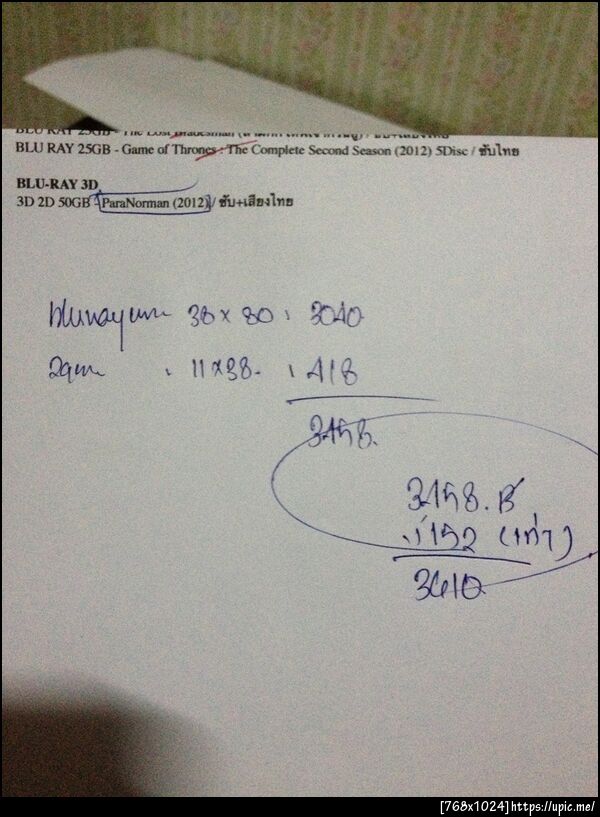 BLU RAY 25GB - The Lost Bladesman
BLU RAY 25GB - Game of Thrones : The Complete Second Season (2012) 5Disc / ซับไทย
BLU-RAY 3D
3D 2D 50GB - ParaNorman (2012) / ซับ+เสียงไทย
38 x 80 : 3040
11 x 38 : 418
3458
3458 B
152 (เก่า)
3610
[768x1024] https://upic.me/